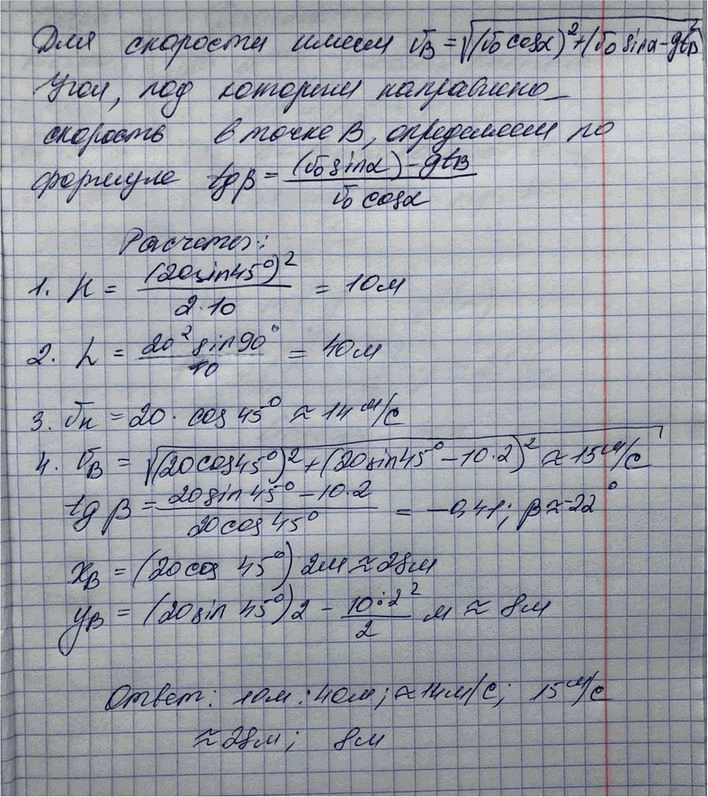 Для скорости имеем v_B = √((v₀ cosα)² + (v₀ sinα - gt_B)²)
Угол, под которым направлена
скорость в точке B, определяем по
формуле tgβ = ((v₀ sinα) - gt_B) / (v₀ cosα)
Расчеты:
1. H = (20sin45°)² / (2·10) = 10м
2. L = 20² sin90° / 10 = 40м
3. v_н = 20 · cos 45° ≈ 14 м/с
4. v_B = √((20cos45°)² + (20sin45° - 10·2)²) ≈ 15 м/с
tg β = (20sin45° - 10·2) / (20cos45°) = -0,41; β ≈ -22°
x_B = (20cos 45°) 2м ≈ 28м
y_B = (20sin 45°)2 - (10·2²) / 2 м ≈ 8м
Ответ: 10м : 40м; ≈14м/с; 15 м/с
≈28м; 8м